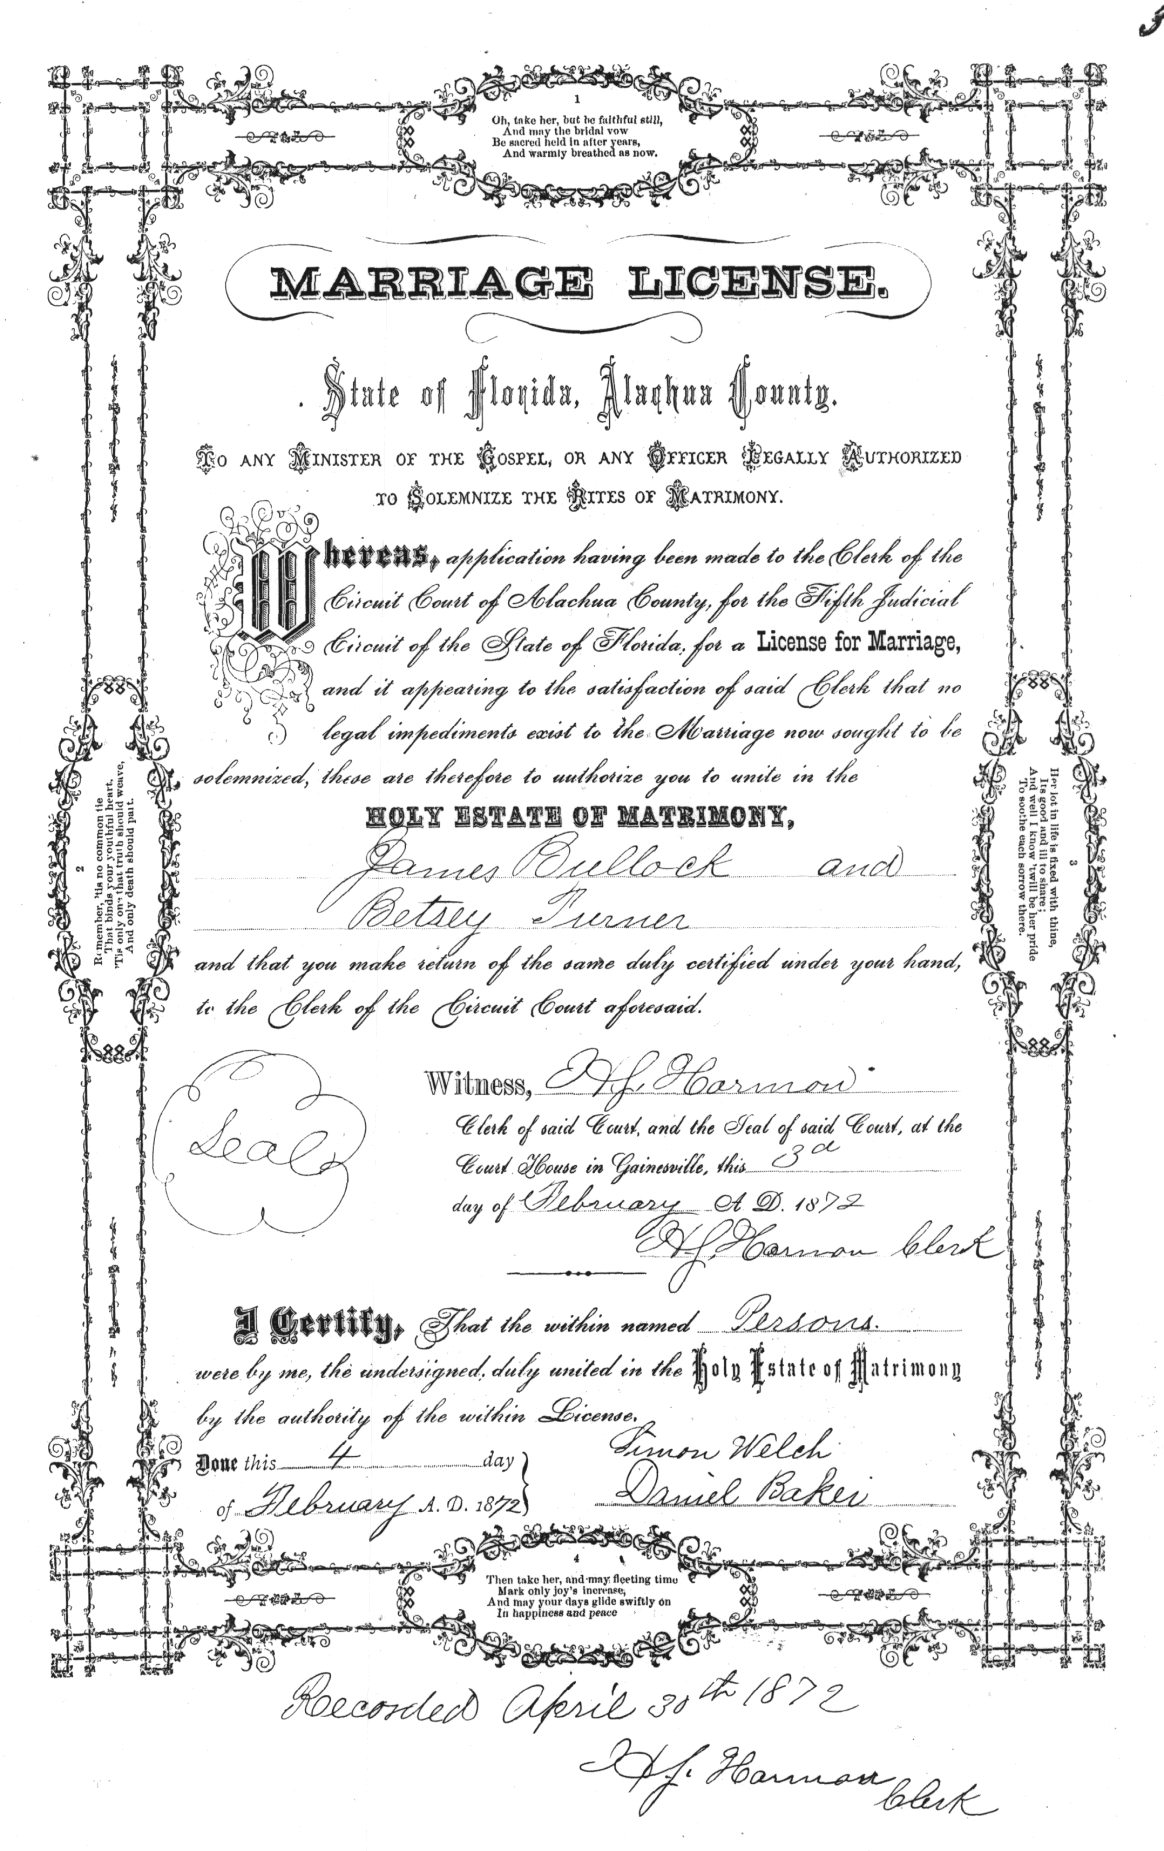 1
Oh, take her, but be faithful still,
And may the bridal vow
Be sacred held in after years,
And warmly breathed as now.
MARRIAGE LICENSE.
State of Florida, Alachua County.
TO ANY MINISTER OF THE GOSPEL, OR ANY OFFICER LEGALLY AUTHORIZED
TO SOLEMNIZE THE RITES OF MATRIMONY.
Whereas, application having been made to the Clerk of the
Circuit Court of Alachua County, for the Fifth Judicial
Circuit of the State of Florida, for a License for Marriage,
and it appearing to the satisfaction of said Clerk that no
legal impediments exist to the Marriage now sought to be
solemnized, these are therefore to authorize you to unite in the
HOLY ESTATE OF MATRIMONY,
James Bullock and
Betsey Turner
and that you make return of the same duly certified under your hand,
to the Clerk of the Circuit Court aforesaid.
2
Remember, 'tis no common tie
That binds your youthful heart,
'Tis only one that truth should weave,
And only death should part.
3
Her lot in life is fixed with thine,
Its good and ill to share;
And well I know 'twill be her pride
To soothe each sorrow there.
Seal
Witness, H J. Harmon
Clerk of said Court, and the Seal of said Court, at the
Court House in Gainesville, this 3d
day of February A D. 1872
H J. Harmon Clerk
I Certify, That the within named Persons.
were by me, the undersigned, duly united in the Holy Estate of Matrimony
by the authority of the within License.
Done this 4 day
of February A. D. 1872
Simon Welch
Daniel Baker
4
Then take her, and may fleeting time
Mark only joy's increase,
And may your days glide swiftly on
In happiness and peace
Recorded April 30th 1872
H J. Harmon
Clerk